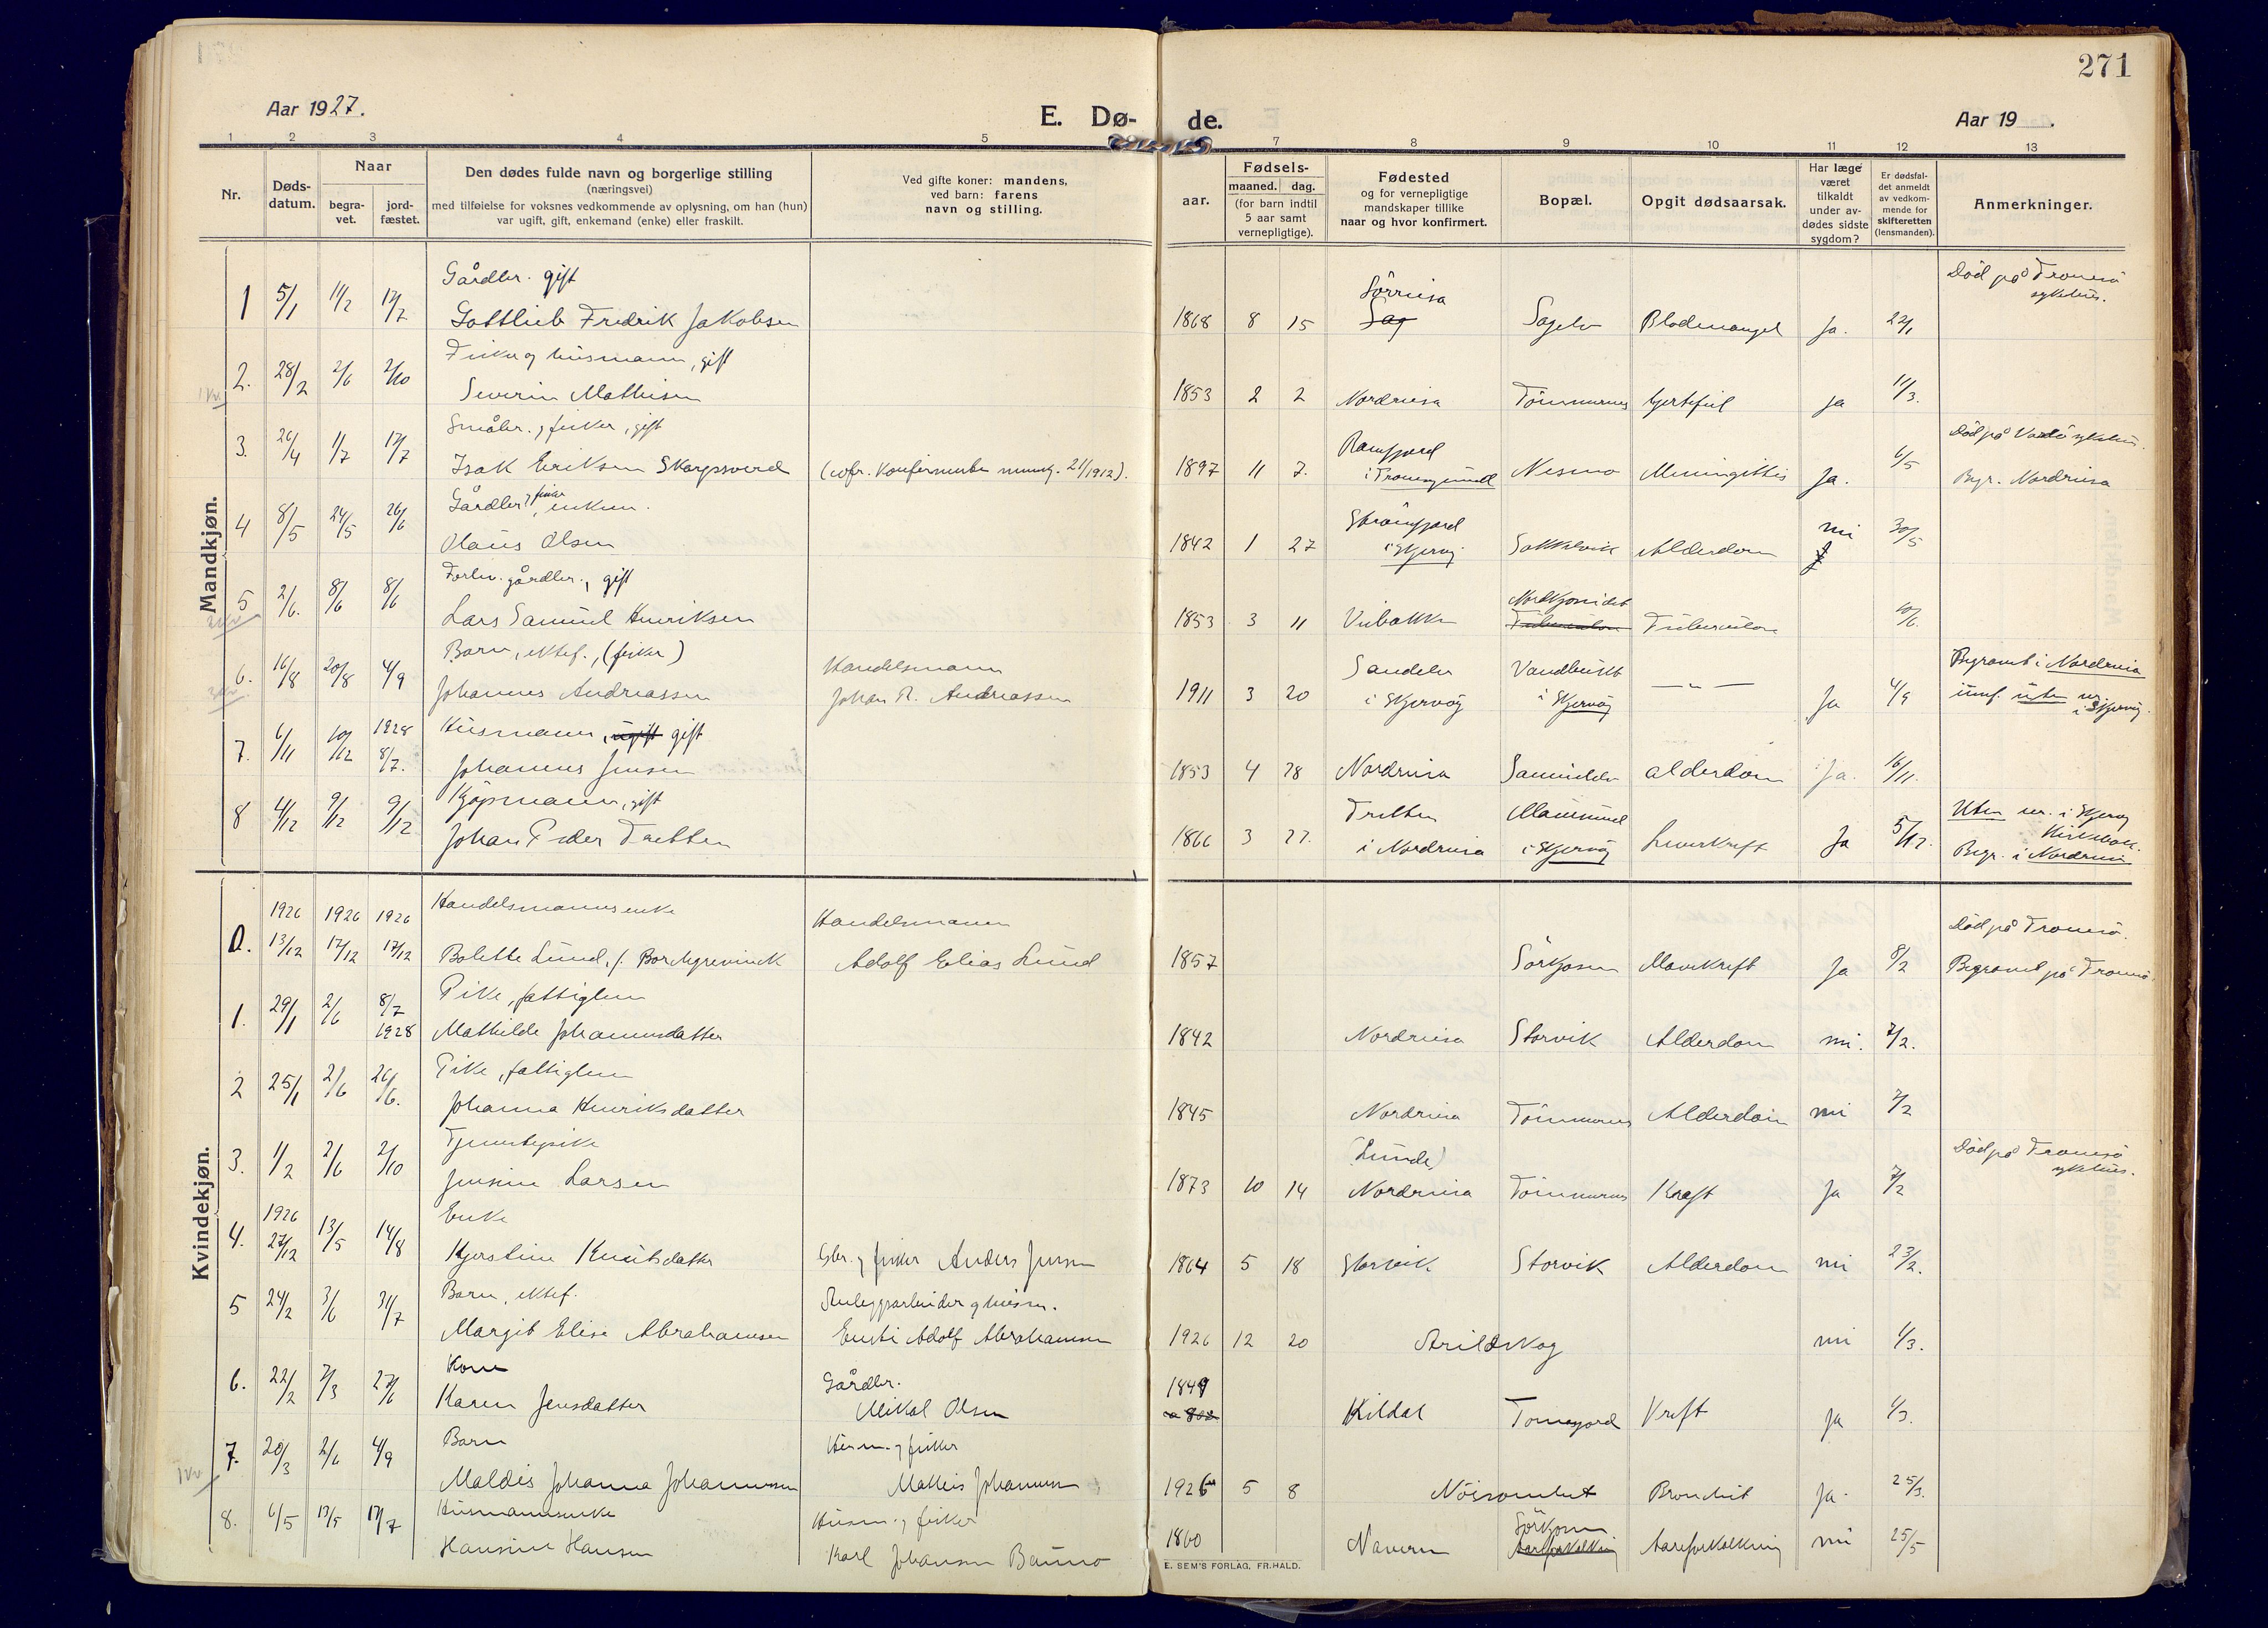 271
Aar 1927.
E. Dø-
de.
Aar 19
1 2 3 4 5 7 8 9 10 11 12 13
Nr.
Døds-
datum.
Naar
begra-
vet.
jord-
fæstet.
Den dødes fulde navn og borgerlige stilling
(næringsvei)
med tilføielse for voksnes vedkommende av oplysning, om han (hun)
var ugift, gift, enkemand (enke) eller fraskilt.
Ved gifte koner: mandens,
ved barn: farens
navn og stilling.
Fødsels-
aar.
maaned.
dag.
(for barn indtil
5 aar samt
vernepligtige).
Fødested
og for vernepligtige
mandskaper tillike
naar og hvor konfirmert.
Bopæl.
Opgit dødsaarsak.
Har læge
været
tilkaldt
under av-
dødes sidste
sygdom?
Er dødsfal-
det anmeldt
av vedkom-
mende for
skifteretten
(lensmanden).
Anmerkninger.
Mandkjøn.
Gårdbr. gift Sörreisa Död på Tromsö sykehus.
1 5/1 11/2 17/7 Gottlieb Fredrik Jakobsen 1868 8 15 Sag Sagelv Blodmangel Ja. 22/1
Fisker og husmann, gift
2. 28/2 2/6 2/10 Severin Mathisen 1853 2 2 Nordreisa Tömmernes hjertefeil Ja 11/3.
Småbr. og fisker, gift Ramfjord Död på Vardö sykehus.
3. 26/4 1/7 17/7 Isak Eriksen Skarpsverd (cofr. Konfirmerte numg. 21/1912). 1897 11 7. i Tromsysund Nesmo Meningittis Ja. 6/5 Begr. Nordreisa
Gårdbr og fisker, enkem. Straumfjord
4 8/5 24/5 26/6 Olaus Olsen 1842 1 27 i Skjervöy Sokkelvik Alderdom nei 30/5
Forhv. gårdbr., gift Nordkjoseidet
5 2/6. 8/6 8/6 Lars Samuel Henriksen 1853 3 11 Veibakken Tuberculose Tuberculose 10/6.
Barn, ektef., (fisker) Handelsmann Sandelv Vandbukt Begravet i Nordreisa
6. 16/8 20/8 4/9 Johannes Andreassen Johan R. Andreassen 1911 3 20 i Skjervöy i Skjervöy — „ — Ja 4/9 innf. uten nr. i Skjervöy.
1928 Husmann, ugift gift
7. 6/11 10/12 8/7. Johannes Jensen 1853 4 28 Nordreisa Samuelelv alderdom Ja. 16/11.
Kjöpmann, gift Tretten Maursund Uten nr. i Skjervöy Kirkebok.
8 4/12 9/12 9/12 Johan Peder Tretten 1866 3 27. i Nordreisa i Skjervöy Leverkreft Ja 5/12. Begr. i Nordreisa
Kvindekjøn.
1926 1926 1926 Handelsmannsenke Handelsmann Död på Tromsö.
0. 13/12 17/12 17/12 Bolette Lund, f. Borchgrevinck Adolf Elias Lund 1857 Sörkjosen Mavekreft Ja 8/2 Begravet på Tromsö.
Pike, fattiglem
1. 29/1 2/6 8/7 1928 Mathilde Johannesdatter 1842 Nordreisa Storvik Alderdom nei. 7/2.
Pike, fattiglem
2 25/1 2/6 26/6. Johanna Henriksdatter 1845 Nordreisa Tömmernes Alderdom nei 7/2
Tjenestepike (Lunde) Död på Tromsö sykehus.
3. 1/2 2/6 2/10 Jensine Larsen 1873 10 14 Nordreisa Tömmernes Kræft Ja 7/2
1926 Enke
4. 27/12 13/5 14/8 Kjerstine Knutsdatter Gbr. og fisker Anders Jensen 1864 5 18 Storvik Storvik Alderdom nei 23/2.
Barn, ektef. Anleggsarbeider og husm.
5 24/2 3/6 31/7 Margit Elise Abrahamsen Adolf Abrahamsen 1926 12 20 Arildskog nei 1/3.
Kone Gårdbr. 1849
6. 22/2 7/3 27/6 Karen Jensdatter Mikal Olsen Kildal Kreft Ja 1/3.
Barn Husm. og fisker
7. 20/3 2/6 4/9 Maldis Johanna Johannesen Mathis Johannesen 1926 5 8 Nöisomhet Bronchit Ja. 25/3.
Husmannsenke Husm. og fisker Sörkjosen
8. 6/5 13/5 17/7 Hansine Hansen Karl Johansen Bauno 1860 Naveren Aareforkalkning Aareforkalkning nei 25/5
E. SEM'S FORLAG, FR.HALD.